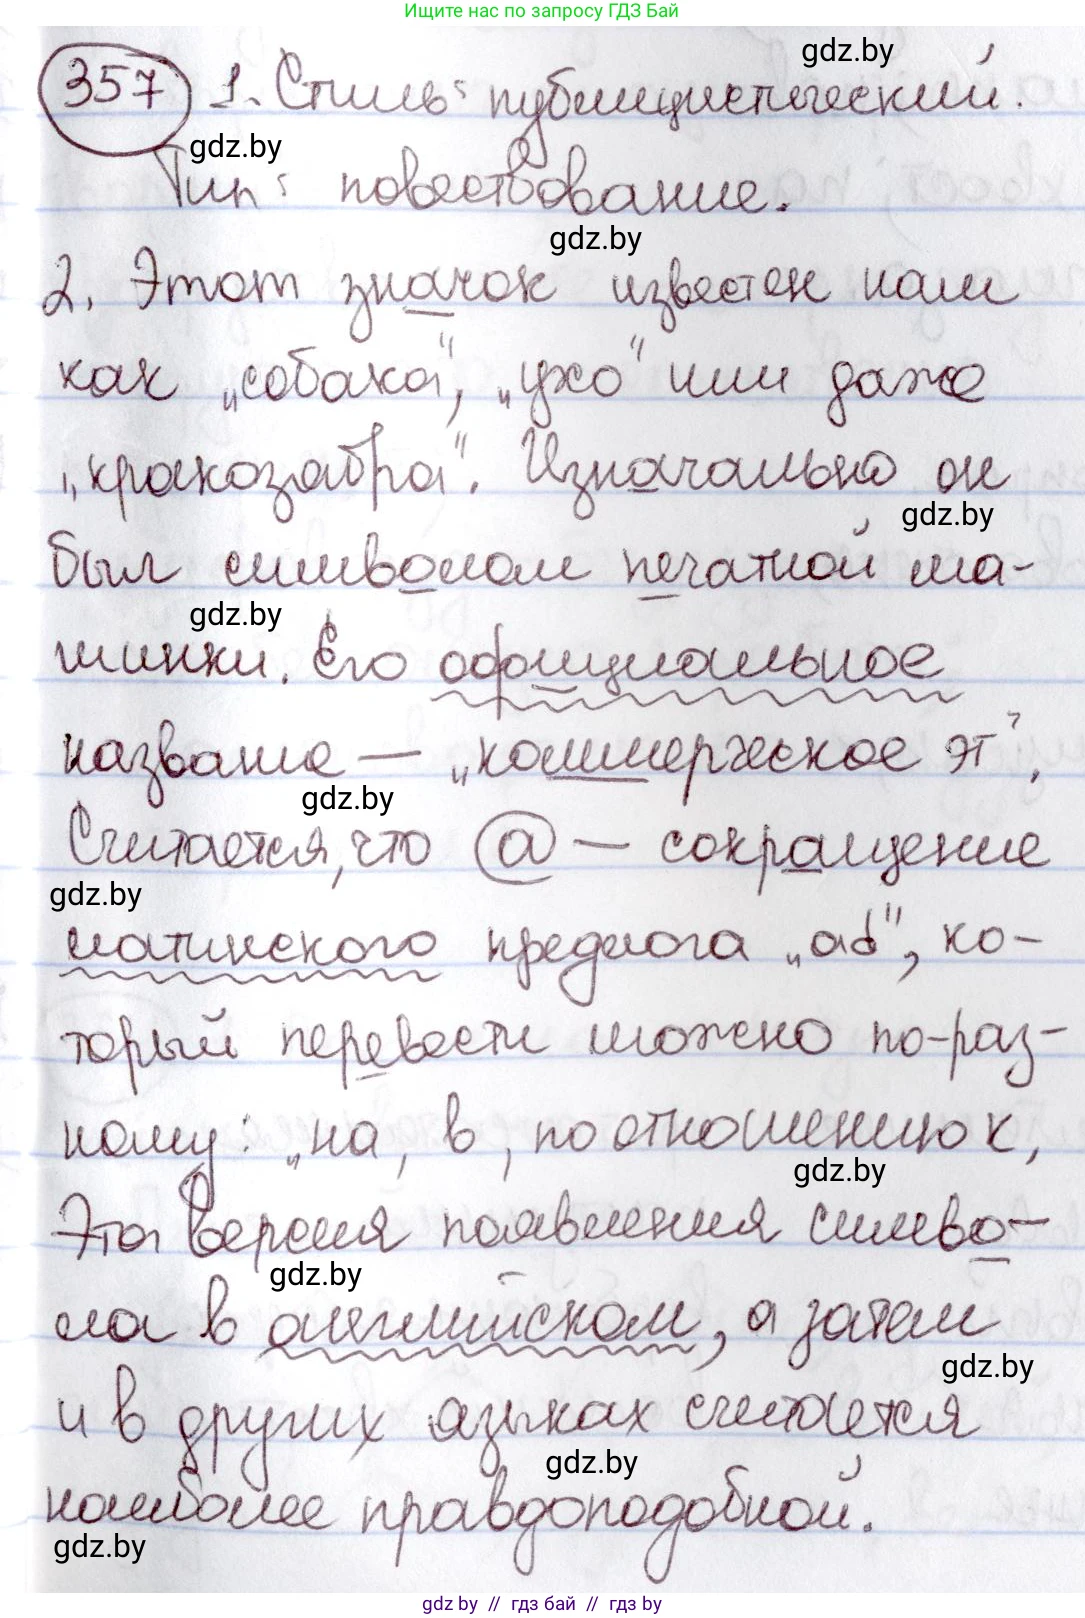 Ищите нас по запросу ГДЗ Бай
gdz.by
357 1. Стиль: публицистический.
gdz.by
Тип: повествование.
gdz.by
2. Этот значок известен нам
как „собака", „ухо" или даже
„кракозабра". Изначально он
gdz.by
был символом печатной ма-
gdz.by
шинки. Его официальное
название — „коммерческое эт".
gdz.by
Считается, что @ — сокращение
gdz.by
латинского предлога „ad", ко-
торый перевести можно по-раз-
ному: „на, в, по отношению к,
gdz.by
Эта версия появления симво-
gdz.by
ла в английском, а затем
gdz.by
и в других языках считается
gdz.by
наиболее правдоподобной.
gdz.by
gdz.by // гдз бай // гдз by